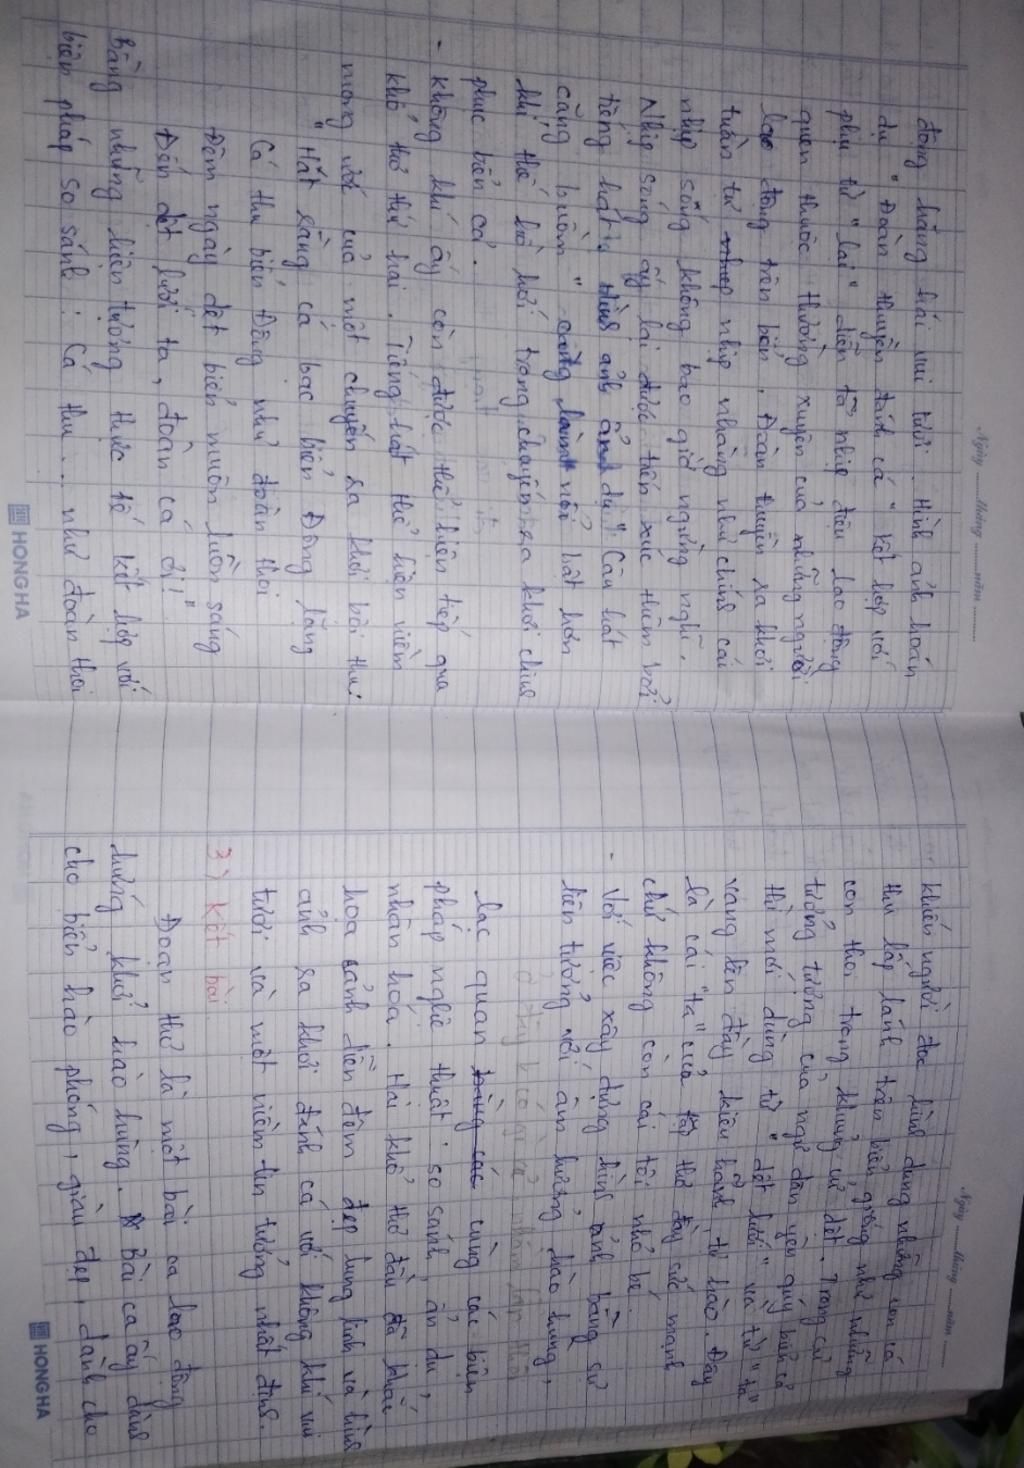 Ngày ........ tháng ........ năm ........
động hăng hái vui tươi. Hình ảnh hoán
dụ "Đoàn thuyền đánh cá" kết hợp với
phụ từ "lại" diễn tả nhịp điệu lao động
quen thuộc thường xuyên của những người
lao động trên biển. Đoàn thuyền ra khơi
tuần tự nhịp nhàng như chính cái
nhịp sống không bao giờ ngừng nghỉ.
Nhịp sống ấy lại được tiếp xúc thêm bởi
tiếng hát. Hình ảnh ẩn dụ "Câu hát
căng buồm" nổi bật hơn
khí thế hồ hởi trong chuyến ra khơi chinh
phục biển cả.
- Không khí ấy còn được thể hiện tiếp qua
khổ thơ thứ hai. Tiếng hát thể hiện niềm
mong ước của một chuyến ra khơi bội thu:
"Hát rằng cá bạc biển Đông lặng
Cá thu biển Đông như đoàn thoi
Đêm ngày dệt biển muôn luồng sáng
Đến dệt lưới ta, đoàn cá ơi!"
Bằng những hiện tượng thực tế kết hợp với
biện pháp so sánh: Cá thu... như đoàn thoi
HONG HA
Ngày ........ tháng ........ năm ........
khiến người đọc hình dung những con cá
thu lấp lánh trên biển, giống như những
con thoi trong khung cửi dệt. Trong sự
tưởng tượng của ngư dân yêu quý biển cả
thì mới dùng từ "dệt lưới" và từ "ta"
vang lên đầy kiêu hãnh, tự hào. Đây
là cái "ta" của tập thể đầy sức mạnh
chứ không còn cái tôi nhỏ bé.
- Với việc xây dựng hình ảnh bằng sự
liên tưởng với âm hưởng hào hùng,
lạc quan cùng các biện
pháp nghệ thuật: so sánh, ẩn dụ,
nhân hoá. Hai khổ thơ đầu đã khắc
họa cảnh đêm đẹp lung linh và hình
ảnh ra khơi đánh cá với không khí vui
tươi và một niềm tin tưởng nhất định.
3) Kết bài.
Đoạn thơ là một bài ca lao động
hứng khởi hào hùng. Bài ca ấy dành
cho biển hào phóng, giàu đẹp, dành cho
HONG HA